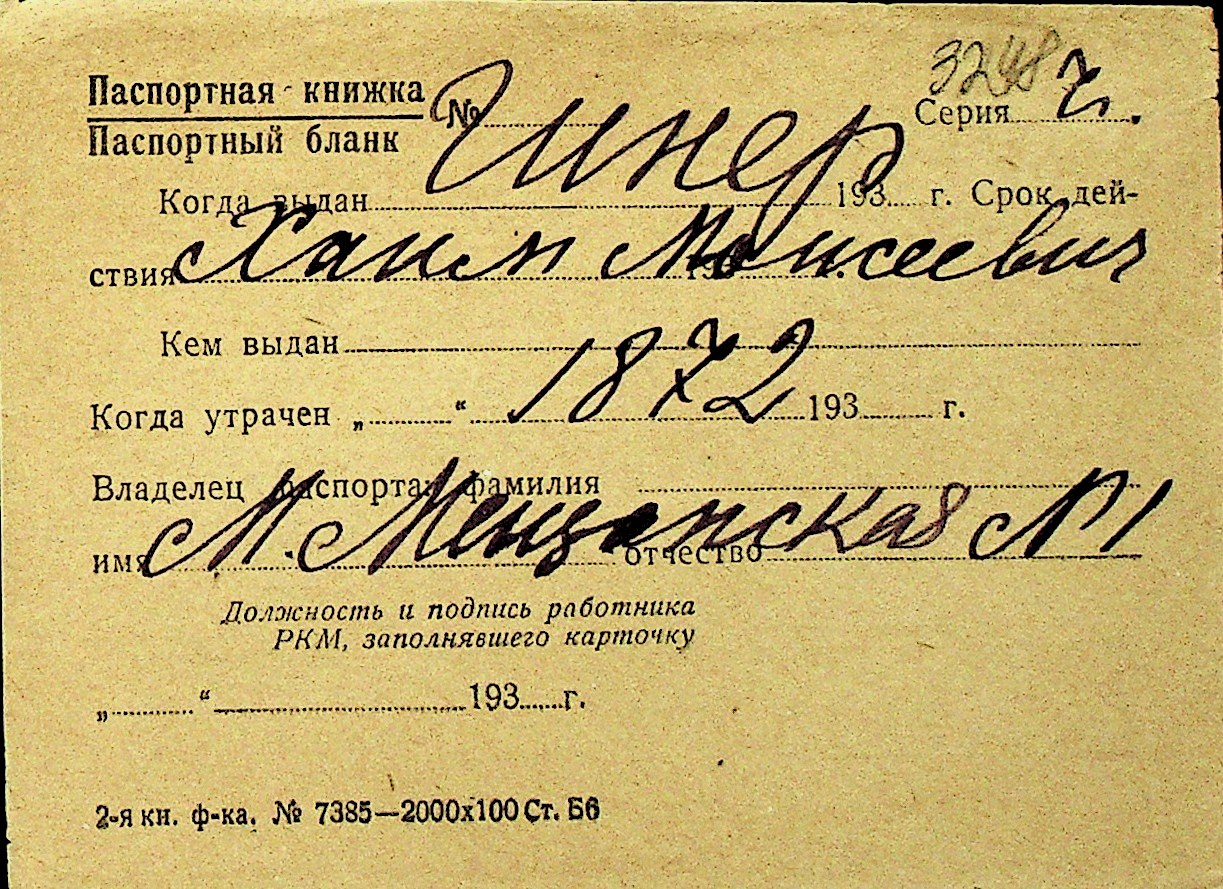 3248
Паспортная книжка № Серия ч.
Паспортный бланк
Гинер
Когда выдан 193 г. Срок дей-
ствия 193 г.
Хаим Моисеевич
Кем выдан
1872
Когда утрачен „ “ 193 г.
Владелец паспорта: фамилия
М. Мещанская №1
имя отчество
Должность и подпись работника
РКМ, заполнявшего карточку
„ “ 193 г.
2-я кн. ф-ка. № 7385—2000х100 Ст. Б6